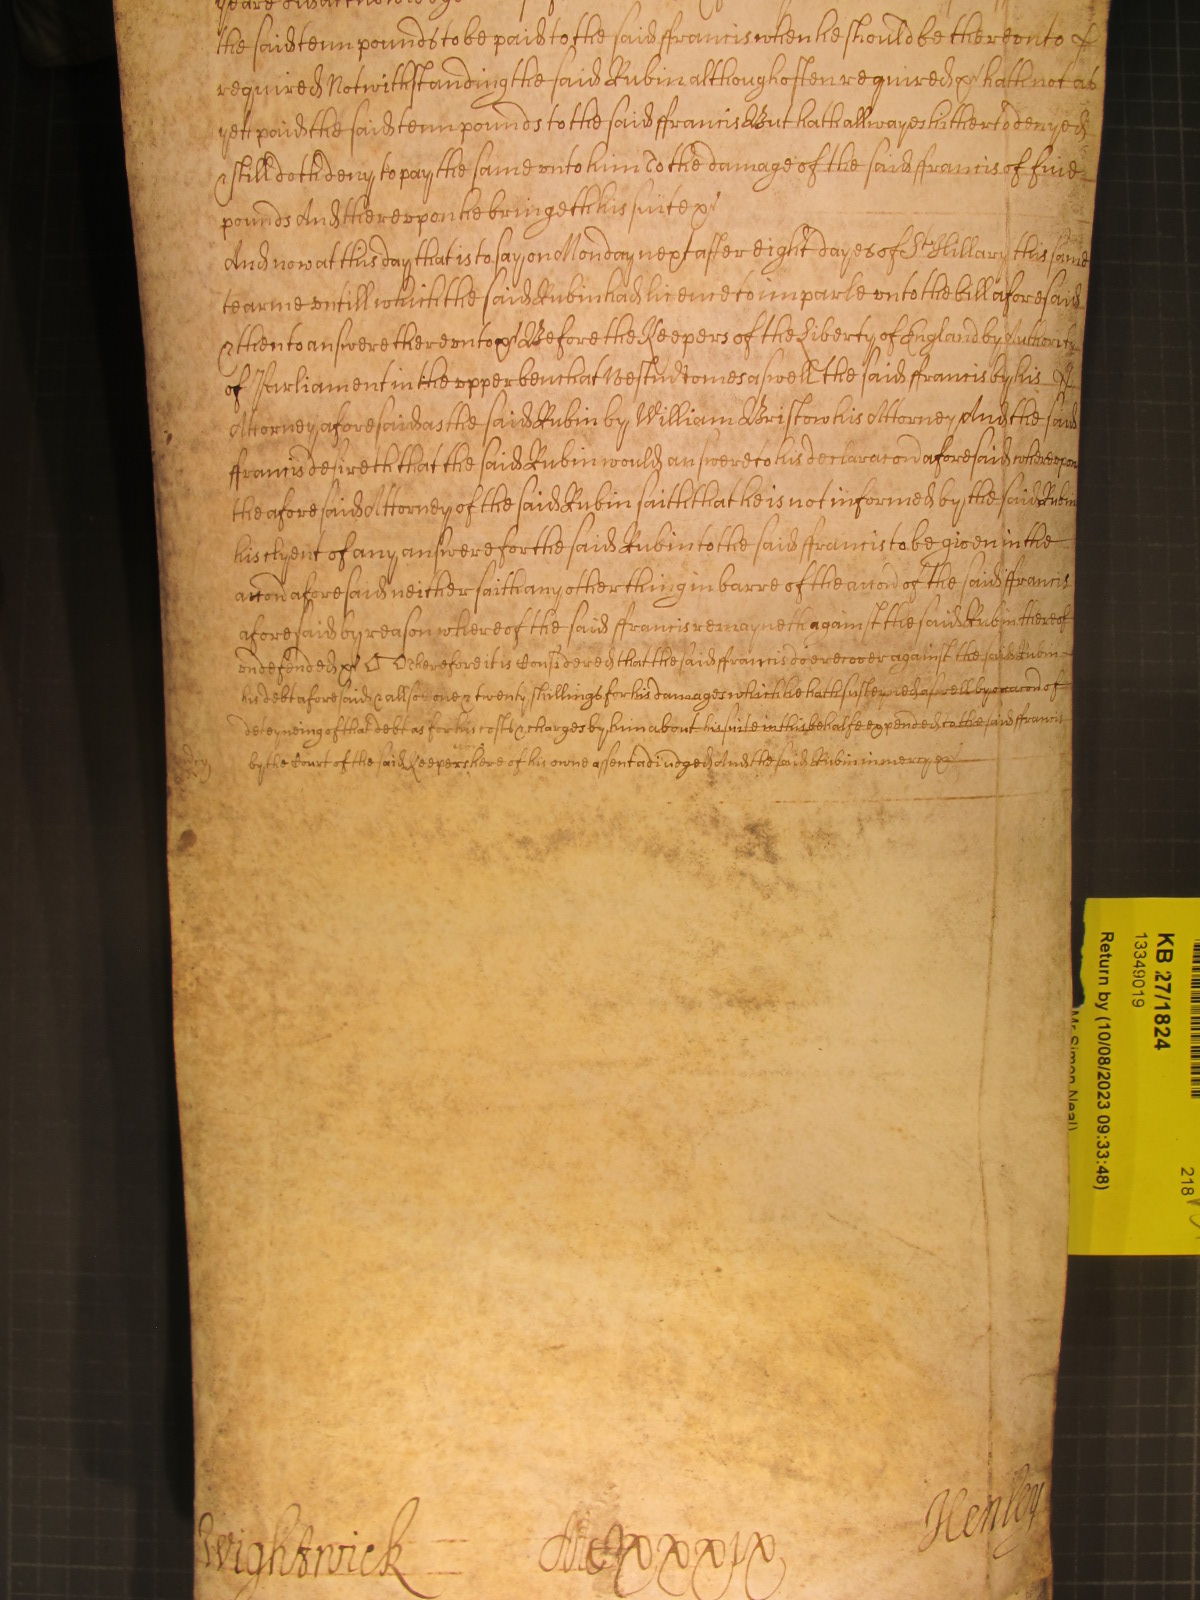 the said tenn pounds to be paid to the said ffrancis when he should be therevnto
required Notwithstanding the said Rubin although often required &c hath not as
yett paid the said tenn pounds to the said ffrancis But hath allwayes hitherto denyed
& still doth deny to pay the same vnto him To the damage of the said ffrancis of fiue
pounds And therevpon he bringeth his suite &c
And now at this day that is to say on Monday next after eight dayes of St Hillary this same
tearme vntill which the said Rubin had licence to imparle vnto the bill aforesaid
& then to answere therevnto &c Before the Keepers of the Liberty of England by Authority
of Parliament in the vpper bench at Westm comes aswell the said ffrancis by his
Attorney aforesaid as the said Rubin by William Bristow his Attorney And the said
ffrancis desireth that the said Rubin would answere to his declaracon aforesaid wherevpon
the aforesaid Attorney of the said Rubin saith that he is not informed by the said Rubin
his clyent of any answere for the said Rubin to the said ffrancis to be given in the
accon aforesaid neither saith any other thing in barre of the accon of the said ffrancis
aforesaid by reason whereof the said ffrancis remayneth against the said Rubin thereof
vndefended &c Wherefore it is Considered that the said ffrancis doe recover against the said Rubin
his debt aforesaid & allsoe one & twenty shillings for his damages which he hath susteyned aswell by occacon of
deteyneing of that debt as for his costs & charges by him about his suite in this behalfe expended to the said ffrancis
by the Court of the said Keepers here of his owne assent adiudged And the said Rubin in mercy &c
Wightwick
MCCxxxix
Henley
KB 27/1824
13349019
Return by (10/08/2023 09:33:48)
Mr Simon Neal)
218